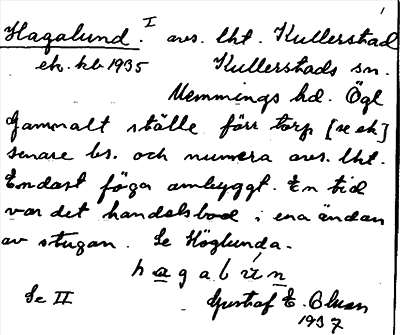 Hagalund. I avs. lht. Kullerstad
ek. kbl 1935 Kullerstads sn.
Memmings hd. Ögl
Gammalt ställe förr torp [se ek]
senare bs. och numera avs. lht.
Endast föga ombyggt. En tid
var det handelsbod i ena ändan
av stugan. Se Höglunda.
hagalún
Se II Gustaf E.
1937